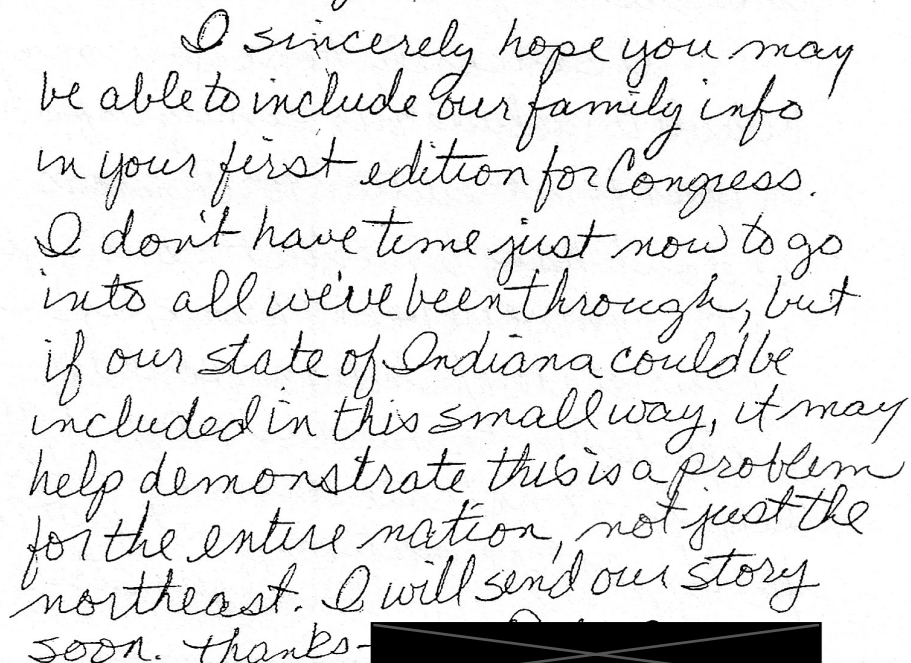 I sincerely hope you may
be able to include our family info
in your first edition for Congress.
I don't have time just now to go
into all we've been through, but
if our state of Indiana could be
included in this small way, it may
help demonstrate this is a problem
for the entire nation, not just the
northeast. I will send our story
soon. Thanks-